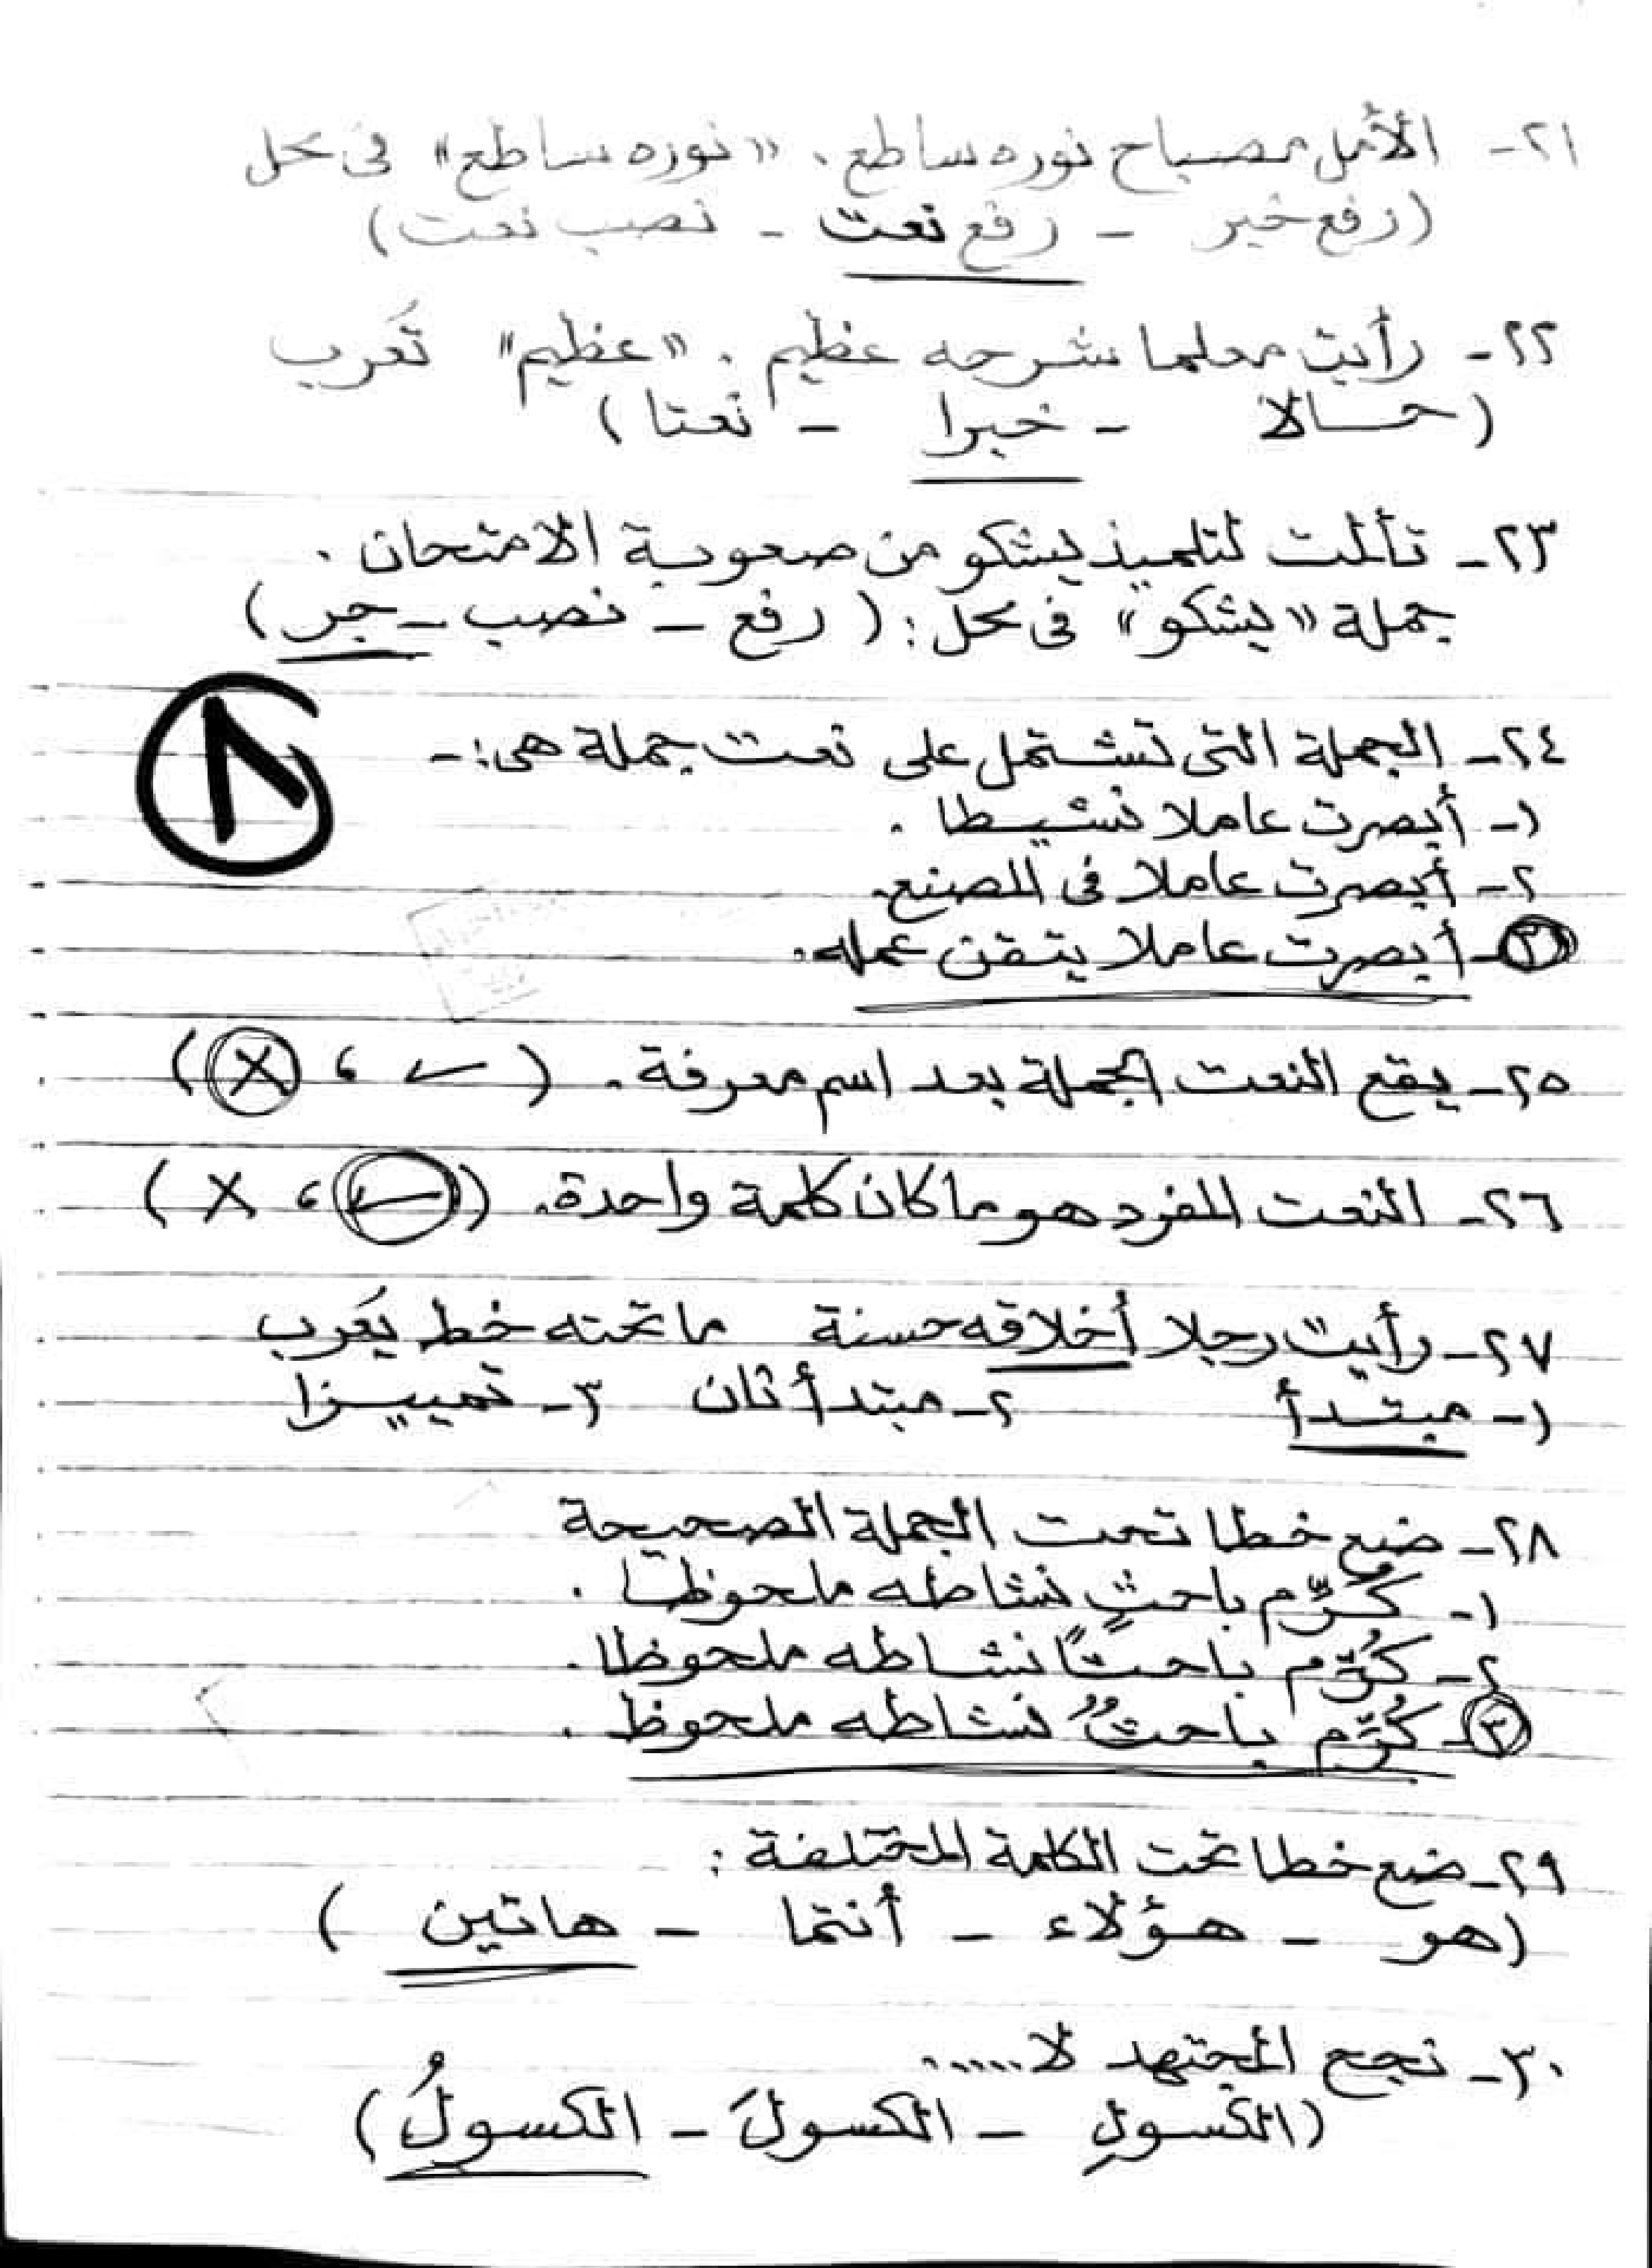 ٢١- الأمل مصباح نوره ساطع. "نوره ساطع" فى محل
(رفع خبر - رفع نعت - نصب نعت)
٢٢- رأيت معلما شرحه عظيم. "عظيم" تُعرب
(حالا - خبرا - نعتا)
٢٣- تألمت لتلميذ يشكو من صعوبة الامتحان.
جملة "يشكو" فى محل: (رفع - نصب - جر)
٨
٢٤- الجملة التى تشتمل على نعت جملة هى:-
١- أبصرت عاملا نشيطا.
٢- أبصرت عاملا فى المصنع.
٣- أبصرت عاملا يتقن عمله.
٢٥- يقع النعت الجملة بعد اسم معرفة. (✓ ، X)
٢٦- النعت المفرد هو ما كان كلمة واحدة. (✓ ، X)
٢٧- رأيت رجلا أخلاقه حسنة ما تحته خط يُعرب
١- مبتدأ ٢- مبتدأ ثان ٣- تمييزا
٢٨- ضع خطا تحت الجملة الصحيحة
١- كُرِّم باحثٍ نشاطه ملحوظا.
٢- كُرِّم باحثًا نشاطه ملحوظا.
٣- كُرِّم باحثٌ نشاطه ملحوظ.
٢٩- ضع خطا تحت الكلمة المختلفة:
(هو - هؤلاء - أنتما - هاتين)
٣٠- نجح المجتهد لا......
(الكسولِ - الكسولَ - الكسولُ)